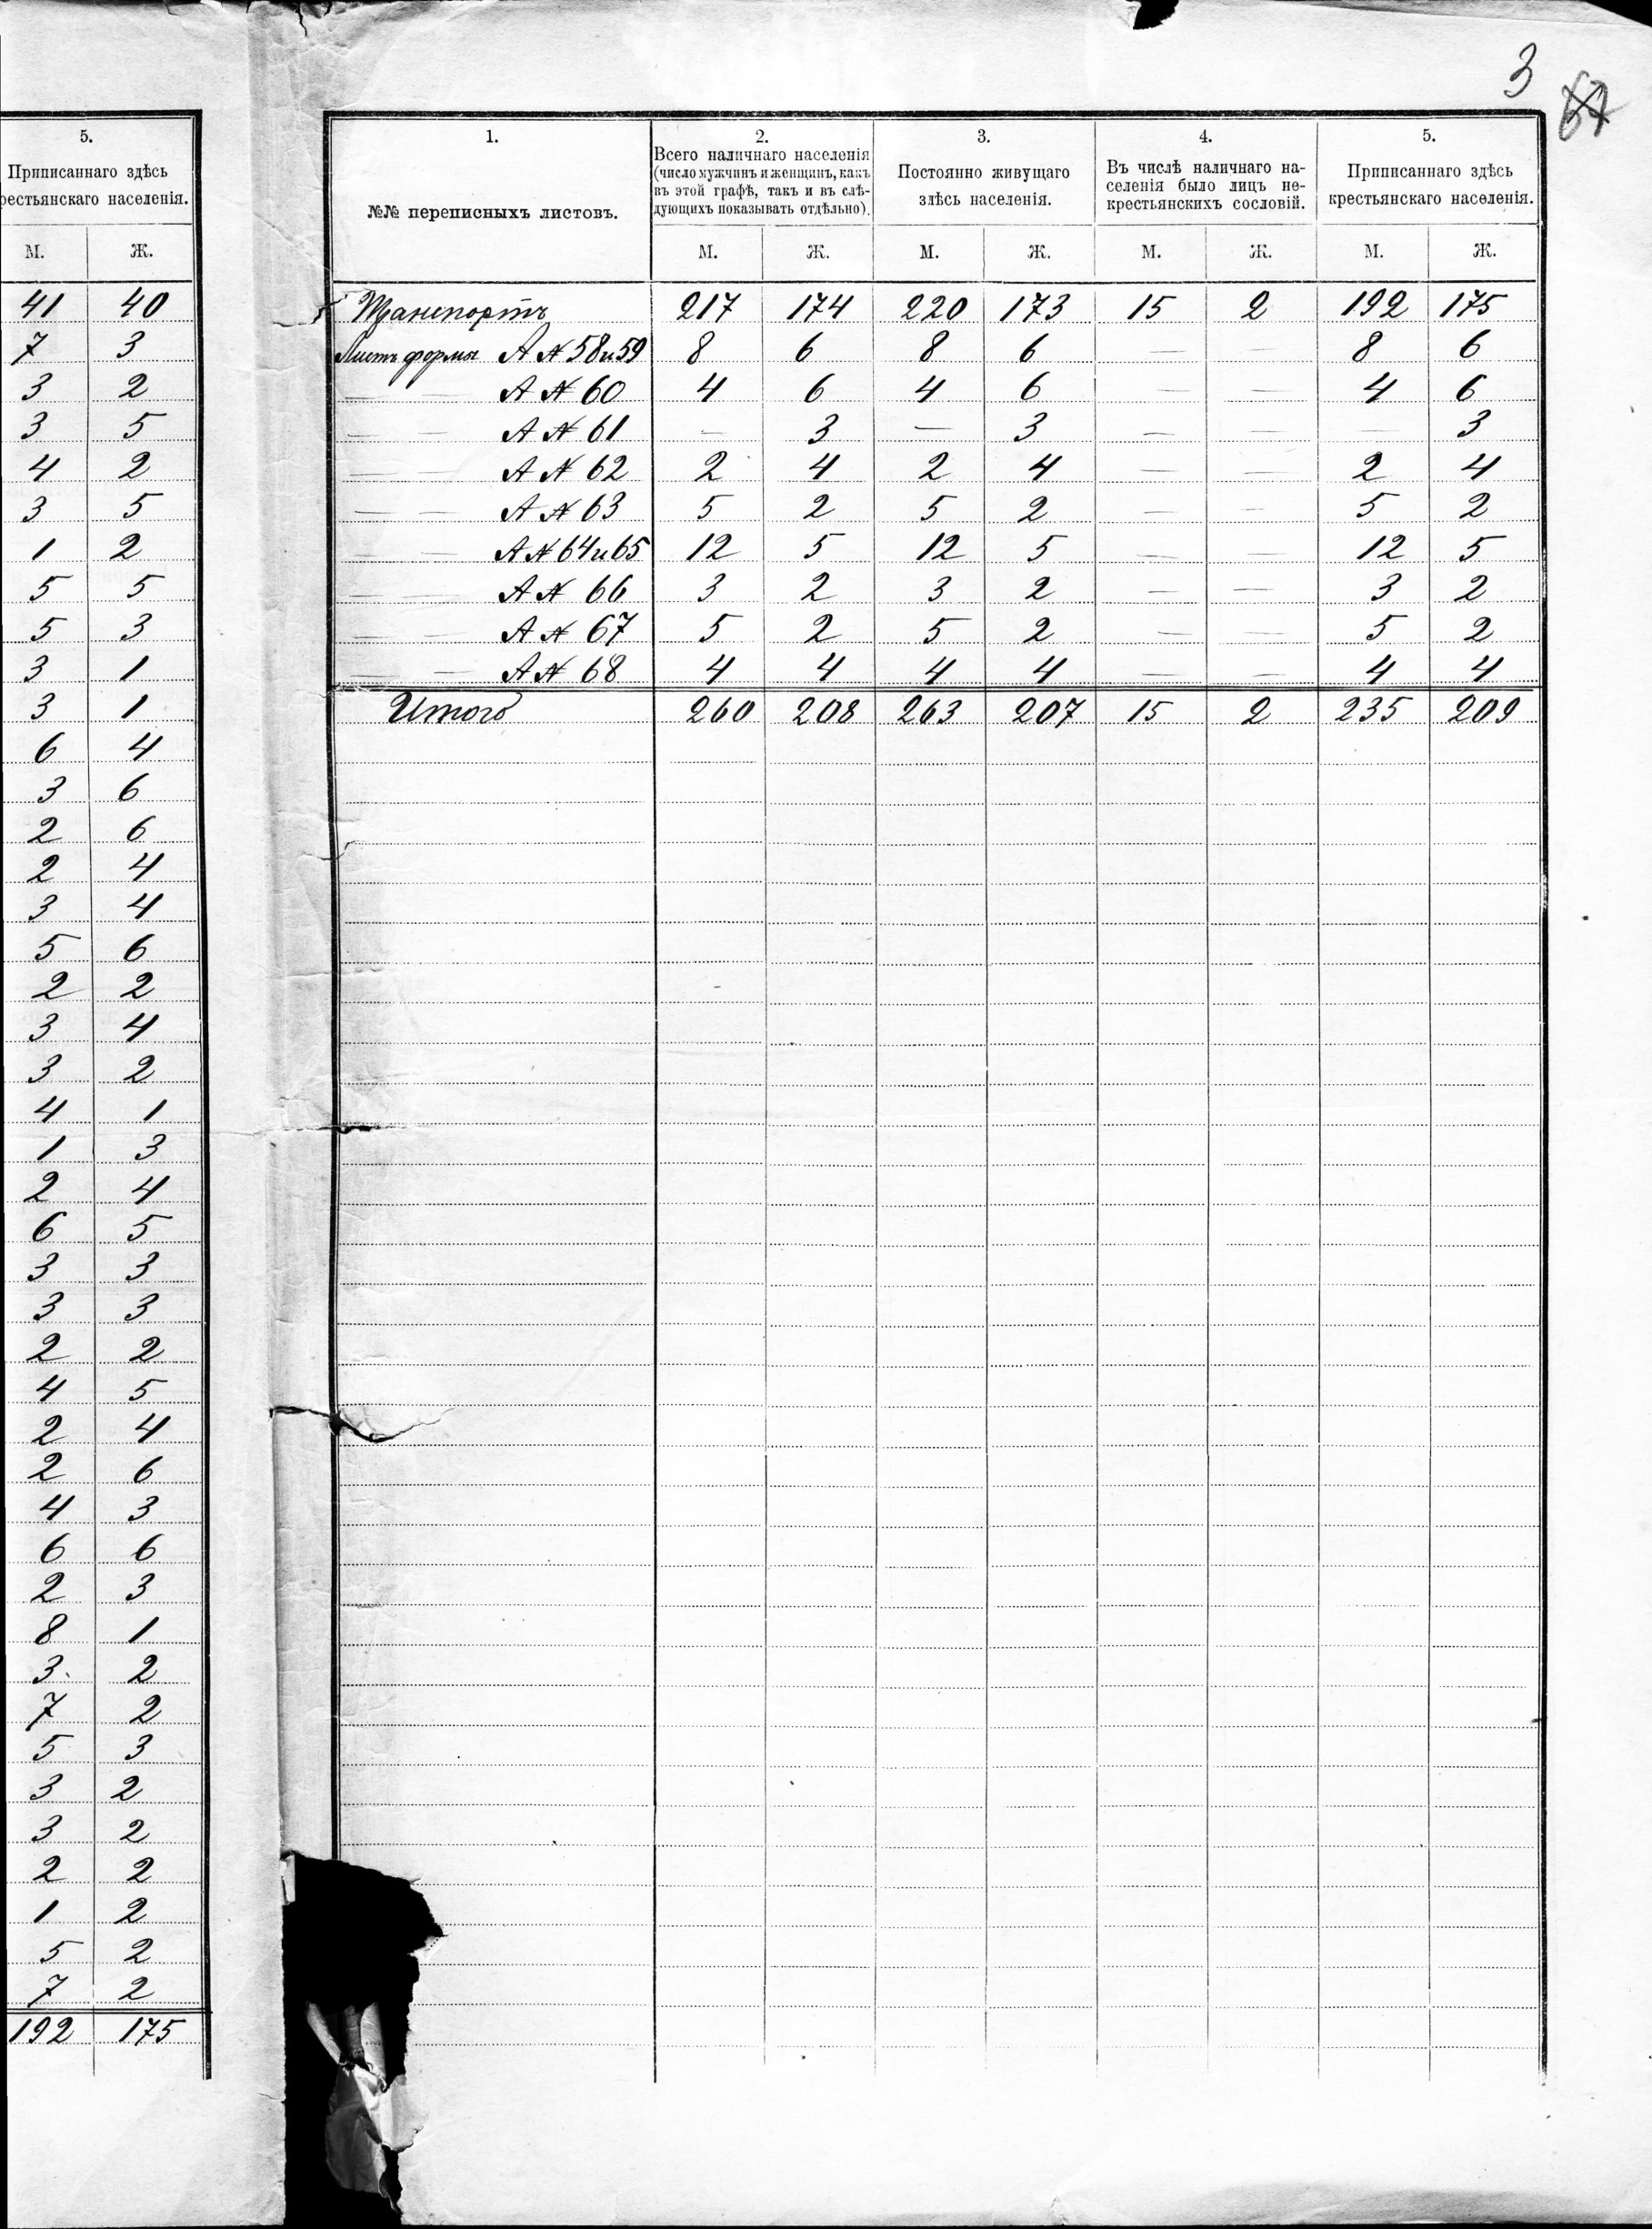 3
67
5.
Приписаннаго здѣсь
рестьянскаго населенія.
М. Ж.
41 40
7 3
3 2
3 5
4 2
3 5
1 2
5 5
5 3
3 1
3 1
6 4
3 6
2 6
2 4
3 4
5 6
2 2
3 4
3 2
4 1
1 3
2 4
6 5
3 3
3 3
2 2
4 5
2 4
2 6
4 3
6 6
2 3
8 1
3 2
7 2
5 3
3 2
3 2
2 2
1 2
5 2
7 2
192 175
1.
№№ переписныхъ листовъ.
2.
Всего наличнаго населенія
(число мужчинъ и женщинъ, какъ
въ этой графѣ, такъ и въ слѣ-
дующихъ показывать отдѣльно).
3.
Постоянно живущаго
здѣсь населенія.
4.
Въ числѣ наличнаго на-
селенія было лицъ не-
крестьянскихъ сословій.
5.
Приписаннаго здѣсь
крестьянскаго населенія.
М. Ж. М. Ж. М. Ж. М. Ж.
Транспортъ 217 174 220 173 15 2 192 175
Листъ формы А № 58 и 59 8 6 8 6 — — 8 6
— — А № 60 4 6 4 6 — — 4 6
— — А № 61 — 3 — 3 — — — 3
— — А № 62 2 4 2 4 — — 2 4
— — А № 63 5 2 5 2 — — 5 2
— — А № 64 и 65 12 5 12 5 — — 12 5
— — А № 66 3 2 3 2 — — 3 2
— — А № 67 5 2 5 2 — — 5 2
— — А № 68 4 4 4 4 — — 4 4
Итого 260 208 263 207 15 2 235 209